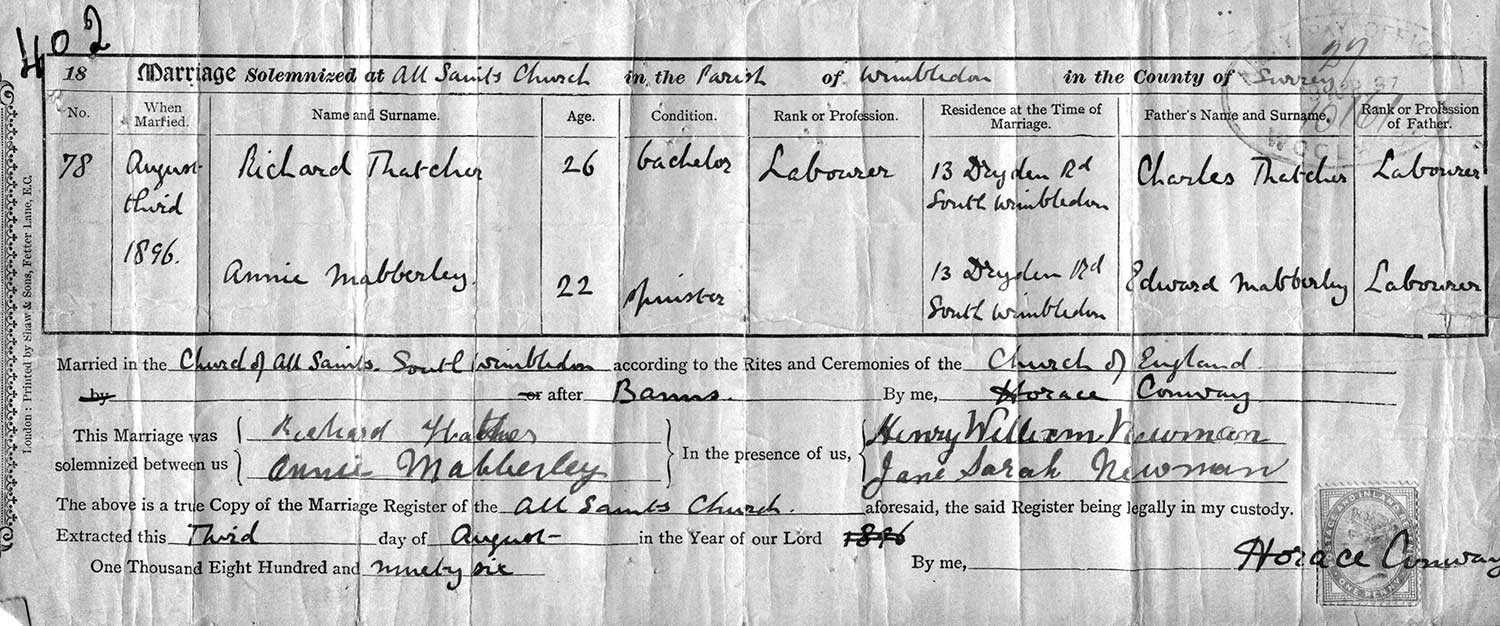 402
18 Marriage Solemnized at All Saints Church in the Parish of Wimbledon in the County of Surrey
No. When Married. Name and Surname. Age. Condition. Rank or Profession. Residence at the Time of Marriage. Father's Name and Surname. Rank or Profession of Father.
78 August third 1896. Richard Thatcher 26 bachelor Labourer 13 Dryden Rd South Wimbledon Charles Thatcher Labourer
Annie Mabberley. 22 spinster 13 Dryden Rd South Wimbledon Edward Mabberley Labourer
Married in the Church of All Saints. South Wimbledon according to the Rites and Ceremonies of the Church of England.
by or after Banns. By me, Horace Conway
This Marriage was solemnized between us Richard Thatcher Annie Mabberley In the presence of us, Henry William Newman Jane Sarah Newman
The above is a true Copy of the Marriage Register of the All Saints Church. aforesaid, the said Register being legally in my custody.
Extracted this Third day of August in the Year of our Lord 1896
One Thousand Eight Hundred and ninety six By me, Horace Conway
London: Printed by Shaw & Sons, Fetter Lane, E.C.